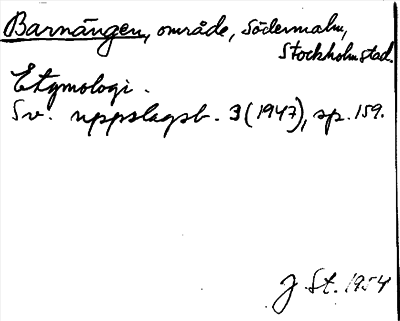 Barnängen, område, Södermalm,
Stockholm stad.
Etymologi.
Sv. uppslagsb. 3 (1947), sp. 159.
J St. 1954